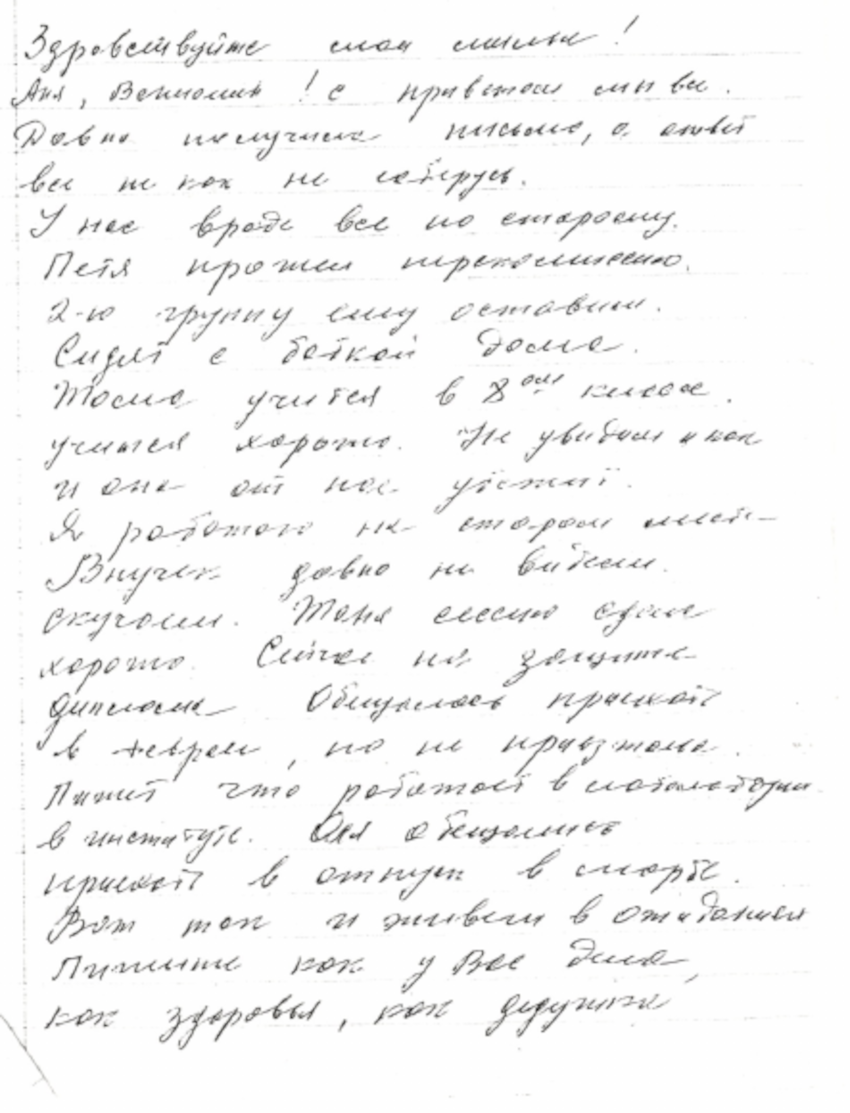 Здравствуйте мои милые!
Аня, Вениамин! с приветом мы все.
Давно получила письмо, а ответ
все ни как не соберусь.
У нас вроде все по старому.
Петя прошел перекомиссию.
2-ю группу ему оставили.
Сидят с бабкой дома.
Тома учится в 8ом классе.
учится хорошо. Не увидим и как
и она от нас убежит.
Я работаю на старом месте
Внучек давно не видели.
скучаем. Таня сессию сдала
хорошо. Сейчас на защите
диплома Обещалась приехать
в феврале, но не приезжала.
Пишет что работает в лаборатории
в институте. Оля обещались
приехать в отпуск в марте.
Вот так и живем в ожидании
Пишите как у Вас дела,
как здоровья, как дедушка